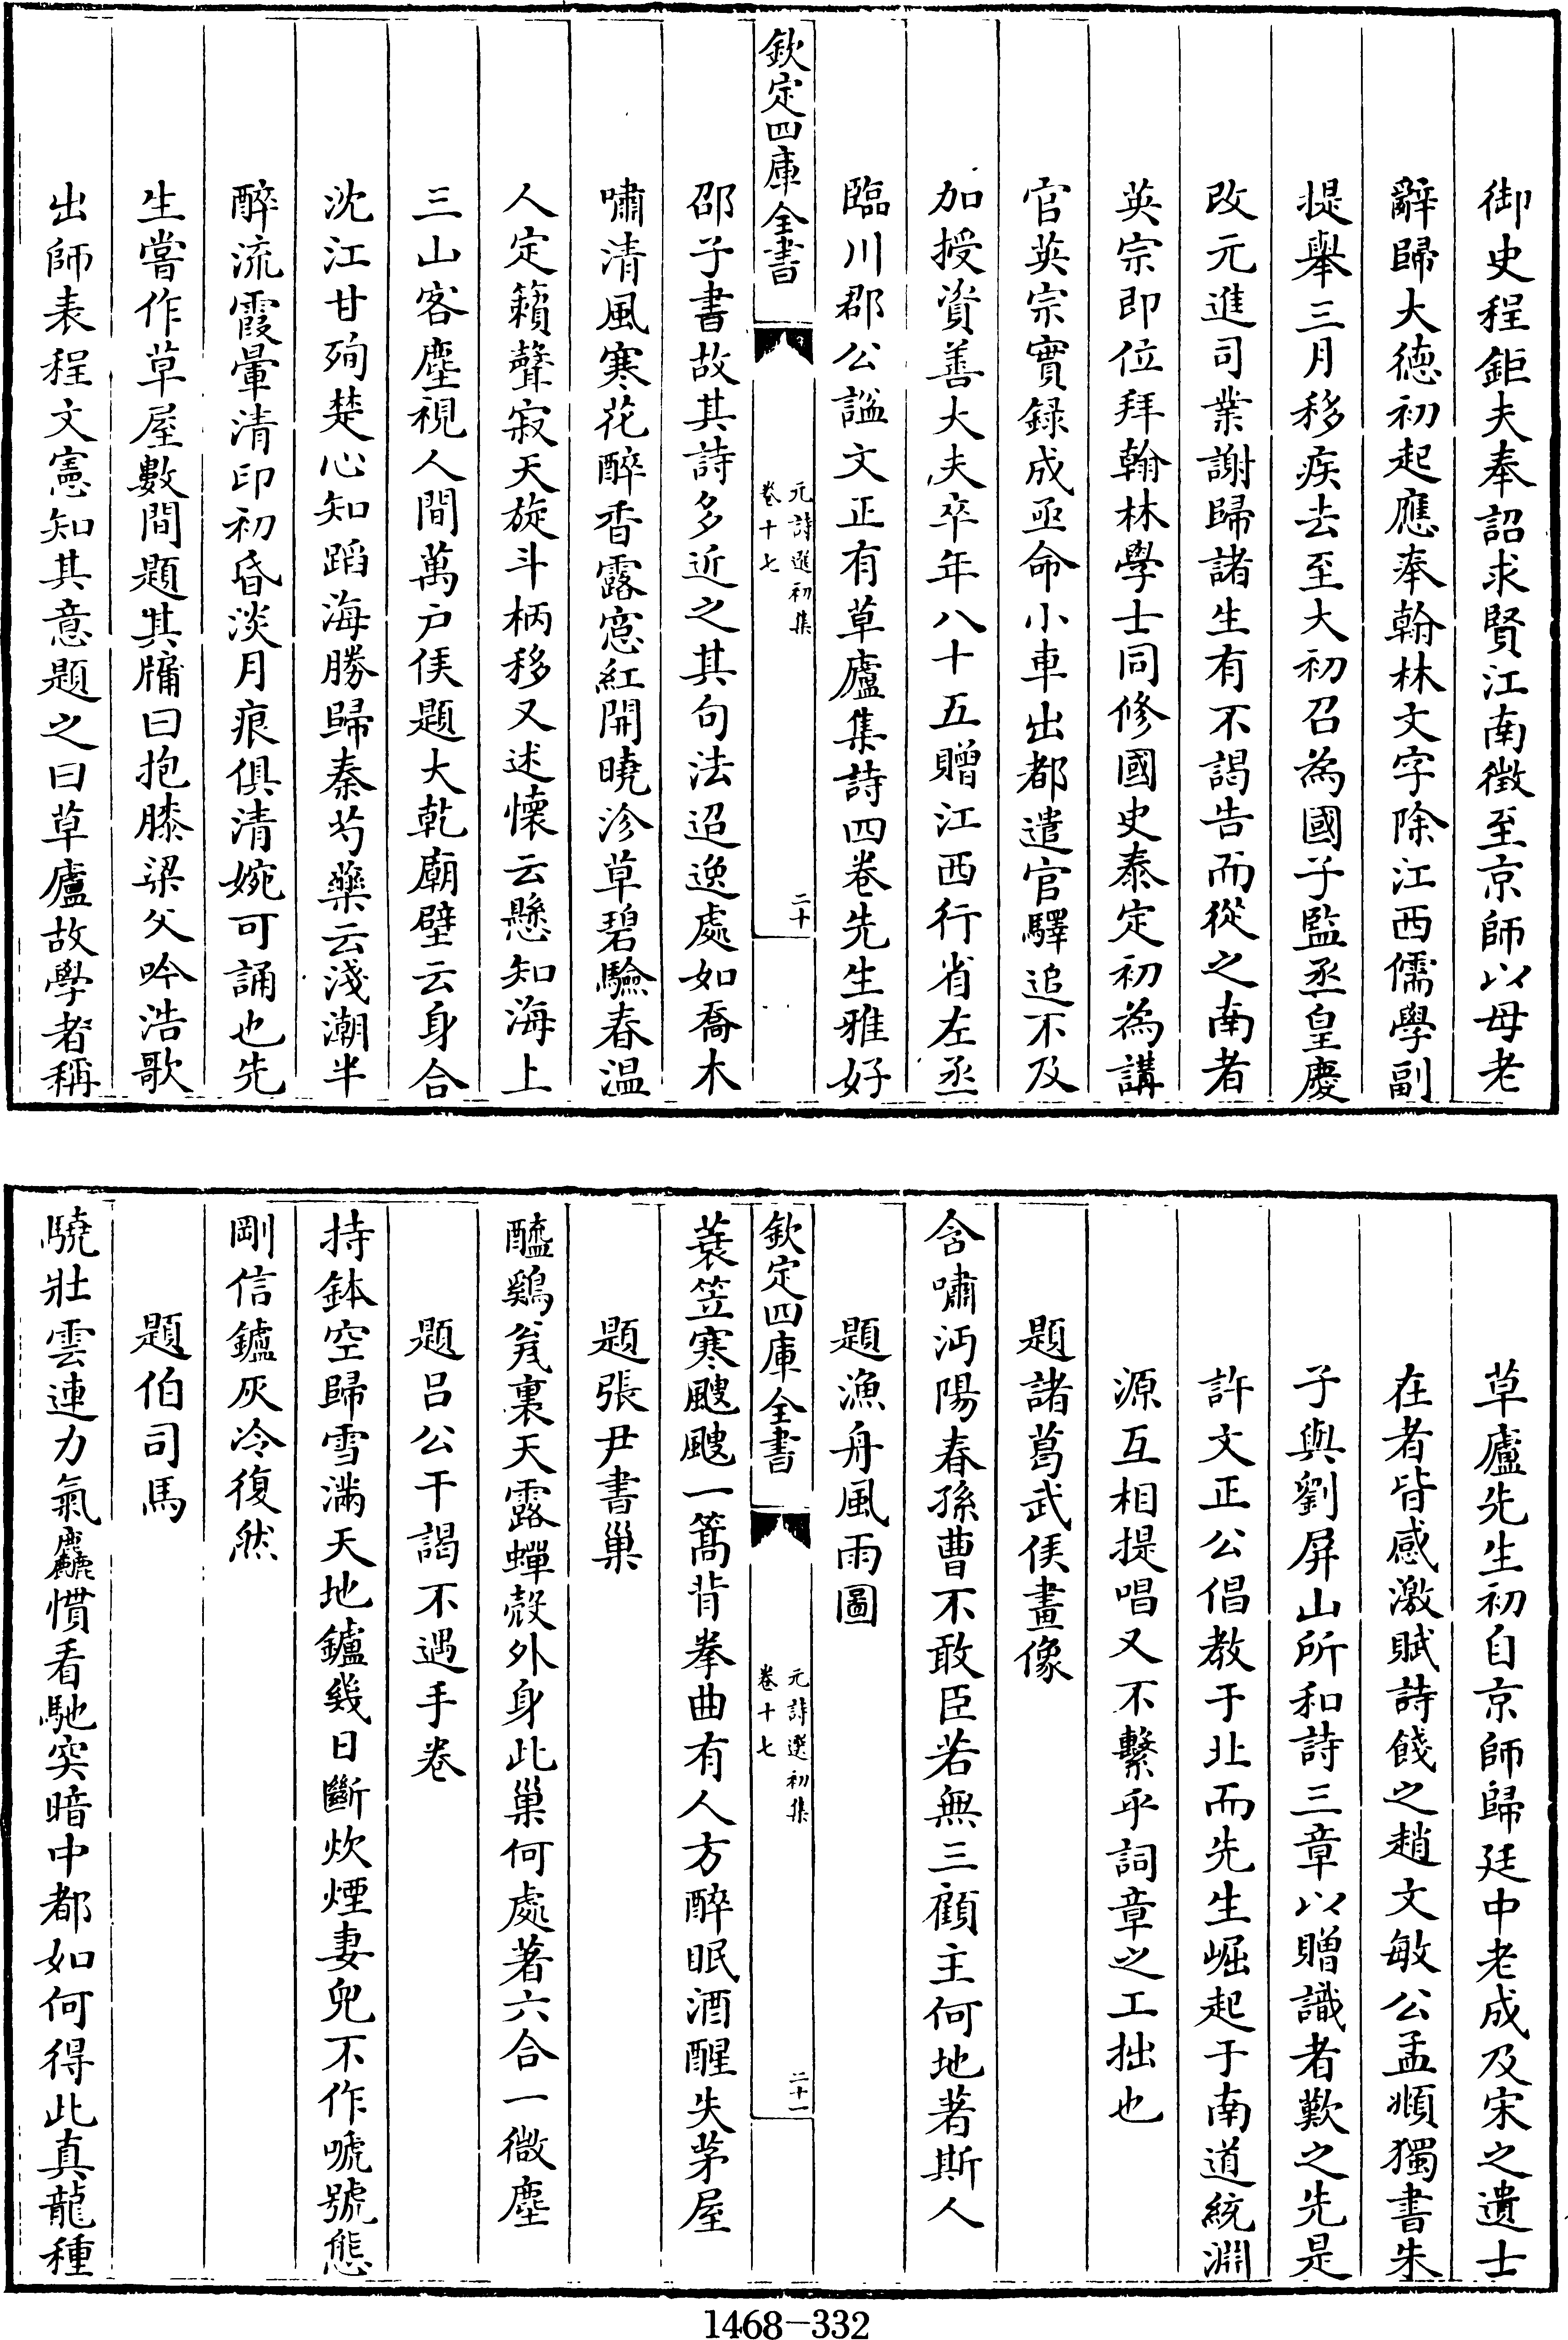 御史程鉅夫奉詔求賢江南徵至京師以母老
辭歸大德初起應奉翰林文字除江西儒學副
提舉三月移疾去至大初召為國子監丞皇慶
改元進司業謝歸諸生有不謁告而從之南者
英宗即位拜翰林學士同修國史泰定初為講
官英宗實録成亟命小車出都遣官驛追不及
加授資善大夫卒年八十五贈江西行省左丞
臨川郡公諡文正有草廬集詩四卷先生雅好
欽定四庫全書
元詩選初集
卷十七
二十
邵子書故其詩多近之其句法迢逸處如喬木
嘯清風寒花醉香露窓紅開曉沴草碧驗春温
人定籟聲寂天旋斗柄移又述懷云懸知海上
三山客塵視人間萬户侯題大乾廟壁云身合
沈江甘殉楚心知蹈海勝歸秦芍藥云淺潮半
醉流霞暈清印初昏淡月痕俱清婉可誦也先
生嘗作草屋數間題其牗曰抱膝梁父吟浩歌
出師表程文憲知其意題之曰草廬故學者稱
草廬先生初自京師歸廷中老成及宋之遺士
在者皆感激賦詩餞之趙文敏公孟頫獨書朱
子與劉屏山所和詩三章以贈識者歎之先是
許文正公倡教于北而先生崛起于南道統淵
源互相提唱又不繫乎詞章之工拙也
題諸葛武侯畫像
含嘯沔陽春孫曹不敢臣若無三顧主何地著斯人
題漁舟風雨圖
欽定四庫全書
元詩選初集
卷十七
二十一
蓑笠寒颼颼一篙背拳曲有人方醉眠酒醒失茅屋
題張尹書巢
醯鷄瓮裏天露蟬殼外身此巢何處著六合一微塵
題吕公干謁不遇手卷
持鉢空歸雪滿天地鑪幾日斷炊煙妻兒不作嗁號態
剛信鑪灰冷復然
題伯司馬
驍壯雲連力氣麤慣看馳突暗中都如何得此真龍種
1468-332